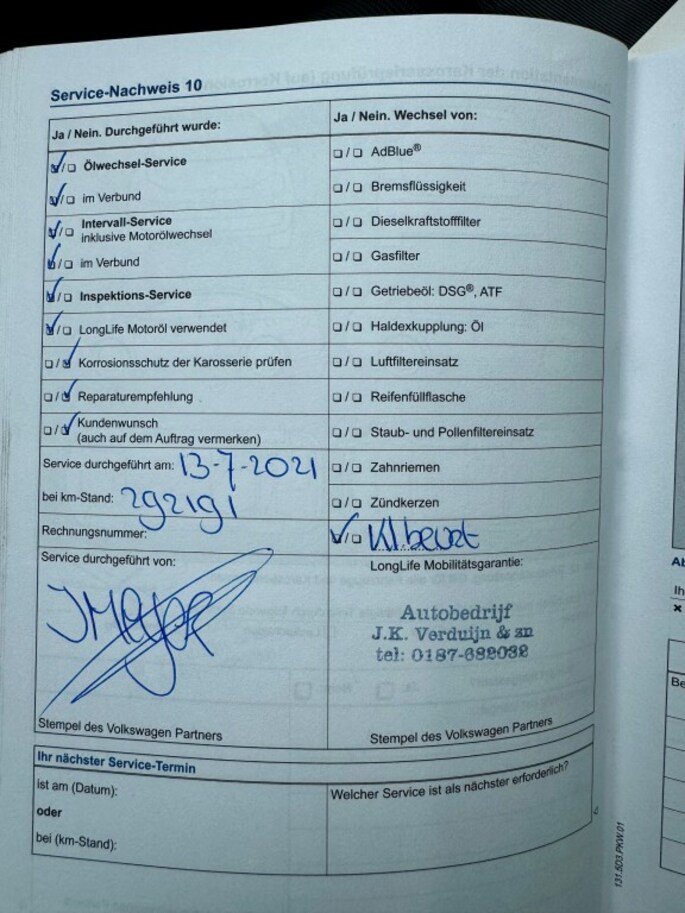 Service-Nachweis 10
Ja / Nein. Durchgeführt wurde:
Ölwechsel-Service
im Verbund
Intervall-Service
inklusive Motorölwechsel
im Verbund
Inspektions-Service
LongLife Motoröl verwendet
Korrosionsschutz der Karosserie prüfen
Reparaturempfehlung
Kundenwunsch
(auch auf dem Auftrag vermerken)
Service durchgeführt am: 13-7-2021
bei km-Stand: 292191
Rechnungsnummer:
Service durchgeführt von:
Stempel des Volkswagen Partners
Ja / Nein. Wechsel von:
AdBlue®
Bremsflüssigkeit
Dieselkraftstofffilter
Gasfilter
Getriebeöl: DSG®, ATF
Haldexkupplung: Öl
Luftfiltereinsatz
Reifenfüllflasche
Staub- und Pollenfiltereinsatz
Zahnriemen
Zündkerzen
Kl.beurt
LongLife Mobilitätsgarantie:
Autobedrijf
J.K. Verduijn & zn
tel: 0187-682032
Stempel des Volkswagen Partners
Ihr nächster Service-Termin
ist am (Datum):
oder
bei (km-Stand):
Welcher Service ist als nächster erforderlich?
131.5D3.PKW.01